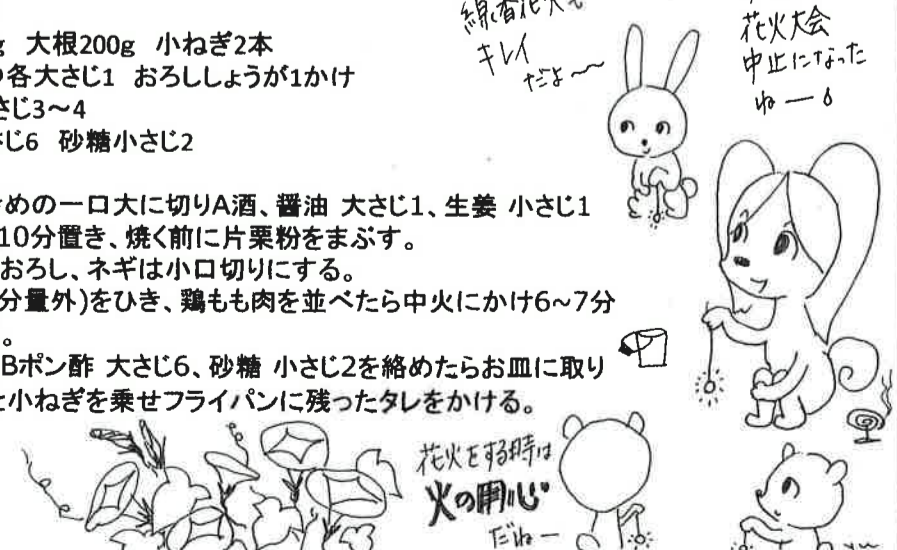 g 大根200g 小ねぎ2本
各大さじ1 おろししょうが1かけ
さじ3～4
じ6 砂糖小さじ2
めの一口大に切りA酒、醤油 大さじ1、生姜 小さじ1
10分置き、焼く前に片栗粉をまぶす。
おろし、ネギは小口切りにする。
分量外)をひき、鶏もも肉を並べたら中火にかけ6～7分
。
Bポン酢 大さじ6、砂糖 小さじ2を絡めたらお皿に取り
と小ねぎを乗せフライパンに残ったタレをかける。
線香花火も
キレイ
だよ～～
花火大会
中止になった
ねー
花火をする時は
火の用心
だねー